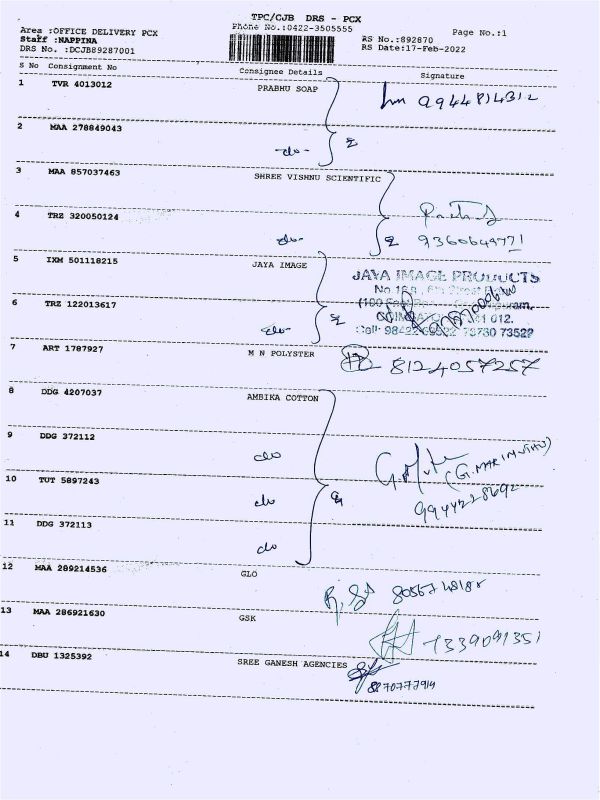 TPC/CJB DRS - PCX
Area :OFFICE DELIVERY PCX
Phone No.:0422-3505555
Page No.:1
Staff :NAPPINA
RS No.:892870
DRS No. :DCJB89287001
RS Date:17-Feb-2022
S No Consignment No Consignee Details Signature
1 TVR 4013012 PRABHU SOAP
9944814312
2 MAA 278849043
-do-
3 MAA 857037463 SHREE VISHNU SCIENTIFIC
4 TRZ 320050124
-do- 9360649771
5 IXM 501118215 JAYA IMAGE
JAYA IMAGE PRODUCTS
6 TRZ 122013617
-do-
7 ART 1787927 M N POLYSTER
8124057257
8 DDG 4207037 AMBIKA COTTON
9 DDG 372112
do
(G. MARIMUTHU)
10 TUT 5897243
do
9944228692
11 DDG 372113
do
12 MAA 289214536 GLO
13 MAA 286921630 GSK
7339091351
14 DBU 1325392 SREE GANESH AGENCIES